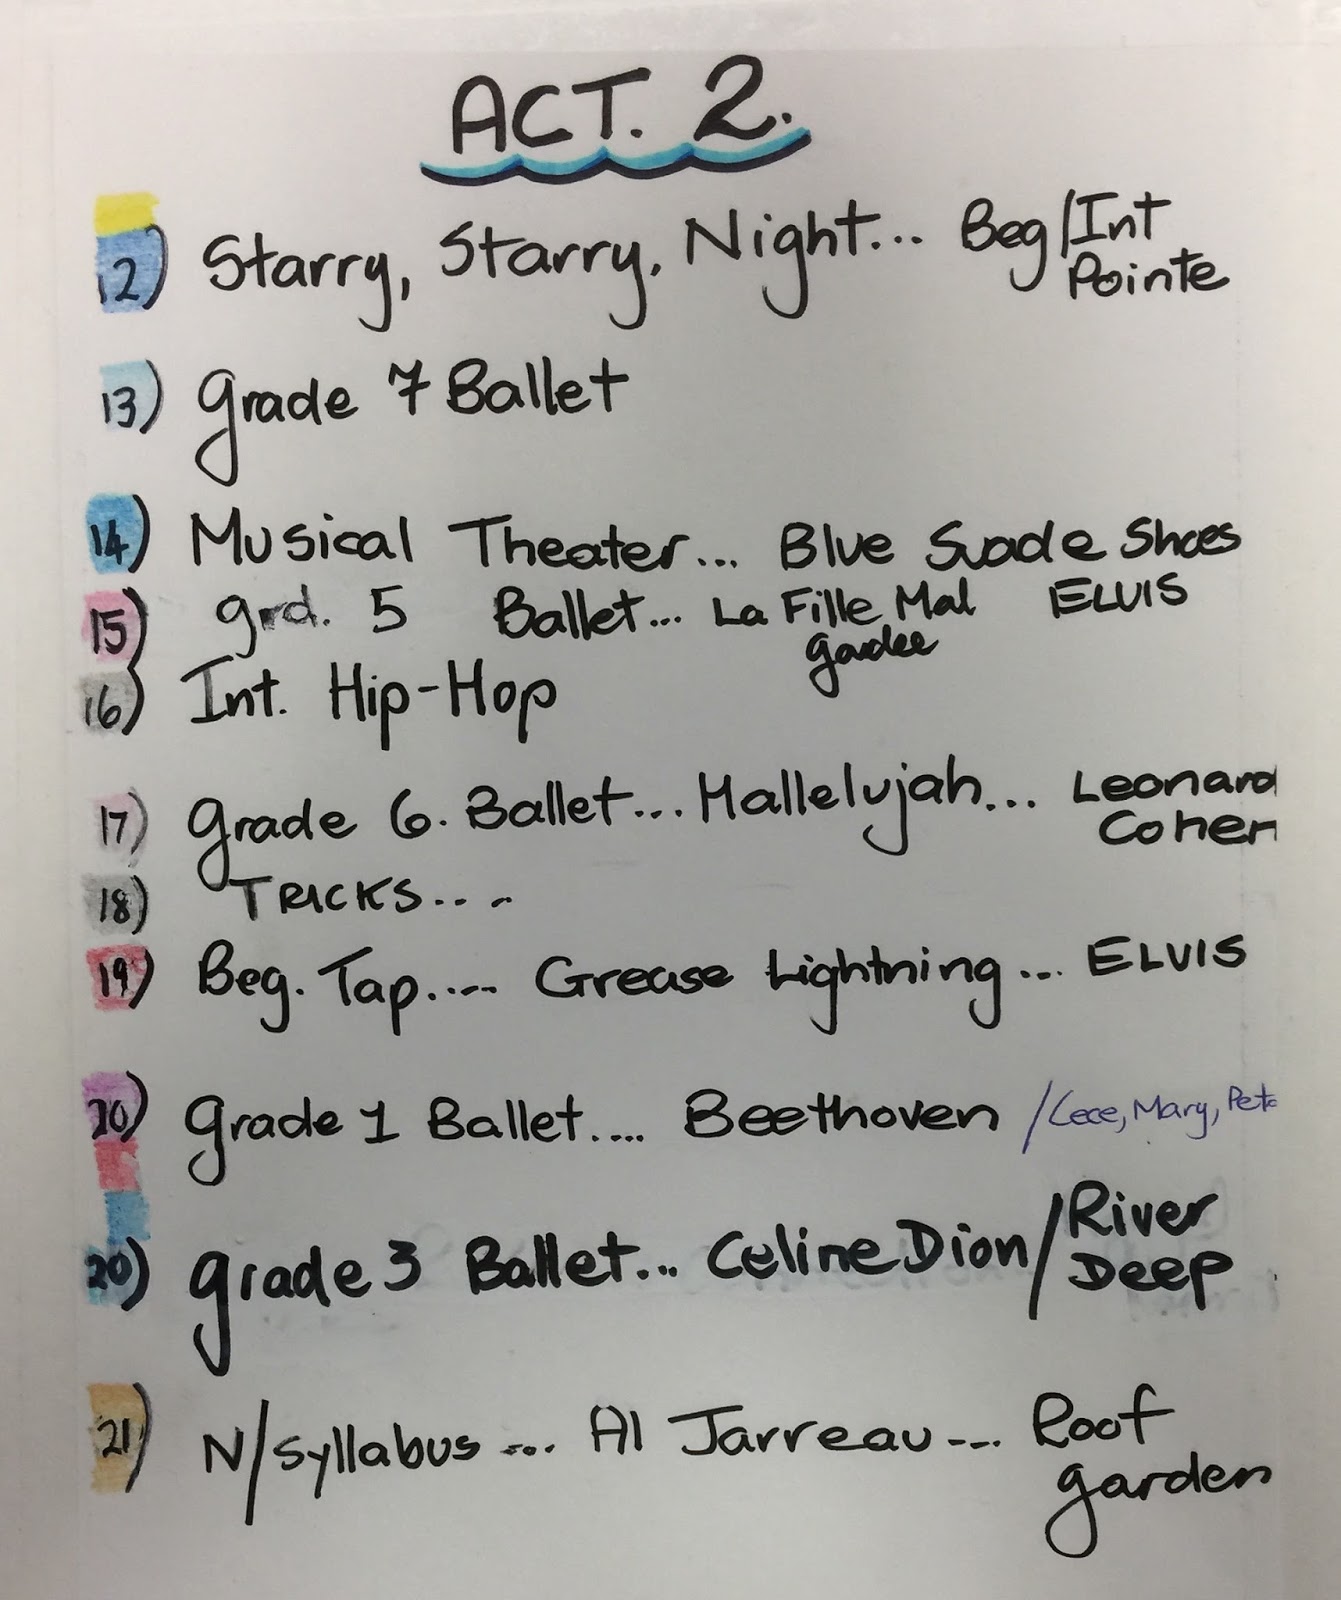 ACT. 2.
12) Starry, Starry, Night... Beg/Int
Pointe
13) Grade 7 Ballet
14) Musical Theater... Blue Suade Shoes
ELVIS
15) grd. 5 Ballet... La Fille Mal
gardee
16) Int. Hip-Hop
17) Grade 6. Ballet... Hallelujah... Leonard
Cohen
18) TRICKS....
19) Beg. Tap.... Grease Lightning... ELVIS
20) Grade 1 Ballet.... Beethoven /Cece, Mary, Pete
20) Grade 3 Ballet... Celine Dion/River
Deep
21) N/Syllabus.... Al Jarreau.... Roof
garden